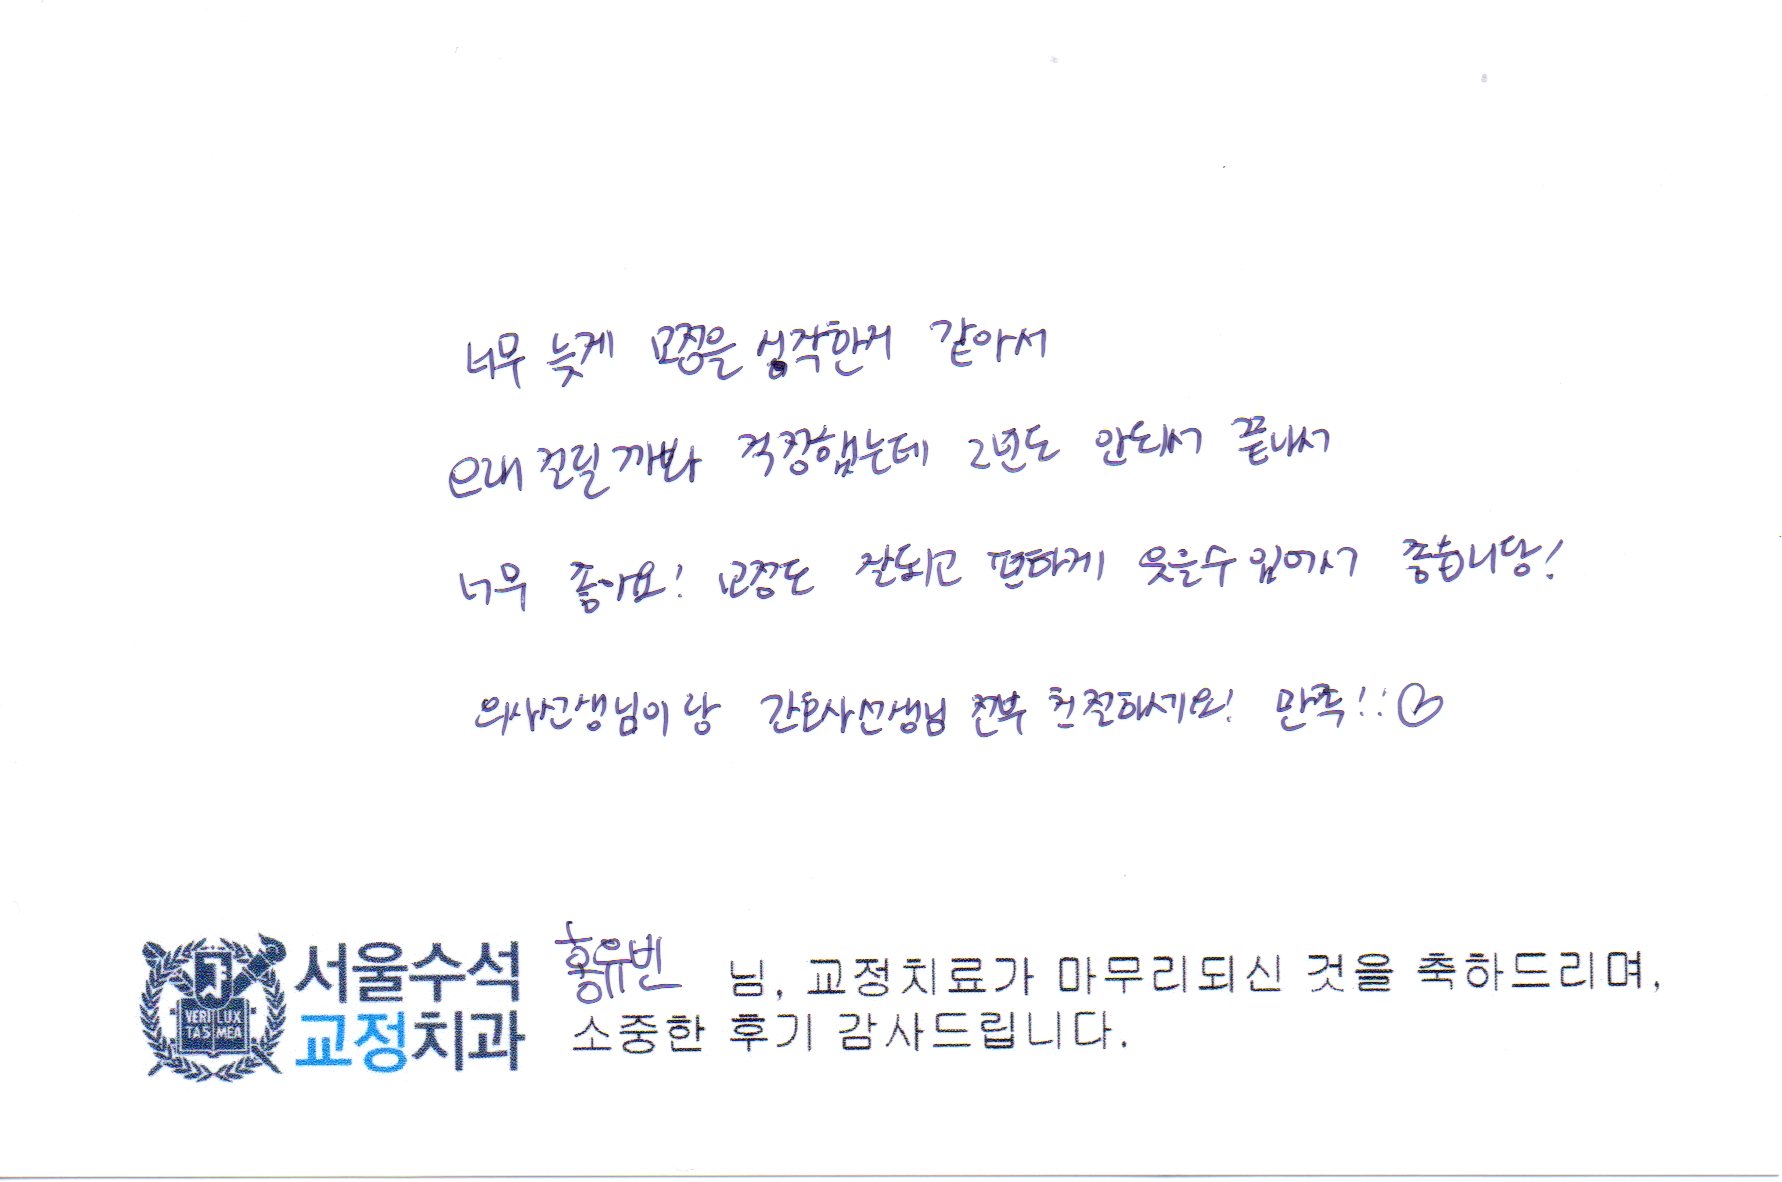 너무 늦게 교정을 시작한거 같아서
오래 걸릴까봐 걱정했는데 2년도 안되서 끝나서
너무 좋아요! 교정도 잘되고 편하게 웃을수있어서 좋습니당!
의사선생님이랑 간호사선생님 전부 친절하세요! 만족!!
서울수석
교정치과
VERI LUX
TAS MEA
홍유빈 님, 교정치료가 마무리되신 것을 축하드리며,
소중한 후기 감사드립니다.